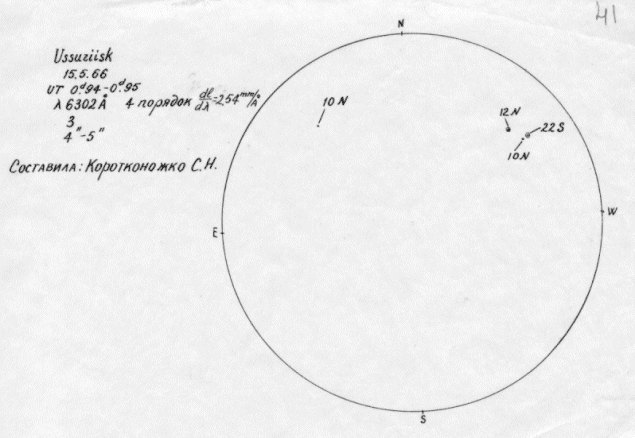 41
Ussuriisk
15.5.66
UT 0ᵈ.94-0ᵈ.95
λ 6302Å 4 порядок dl/dλ=2.54 mm/Å
3
4"-5"
Составила: Коротконожко С.Н.
N
10 N
12 N
22 S
10 N
W
E
S